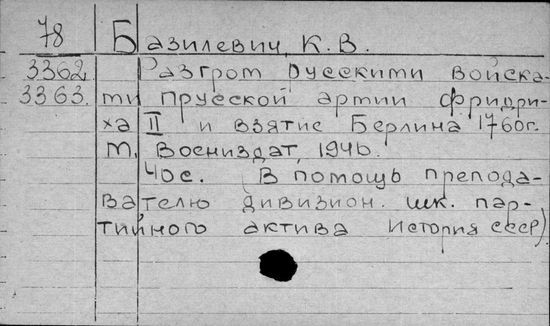 78 Базилевич, К. В.
3362 Разгром русскими войска-
3363. ми прусской армии Фридри-
ха II и взятие Берлина 1760г.
М, Воениздат, 1946.
40с. (В помощь препода-
вателю дивизион. шк. пар-
тийного актива История СССР)